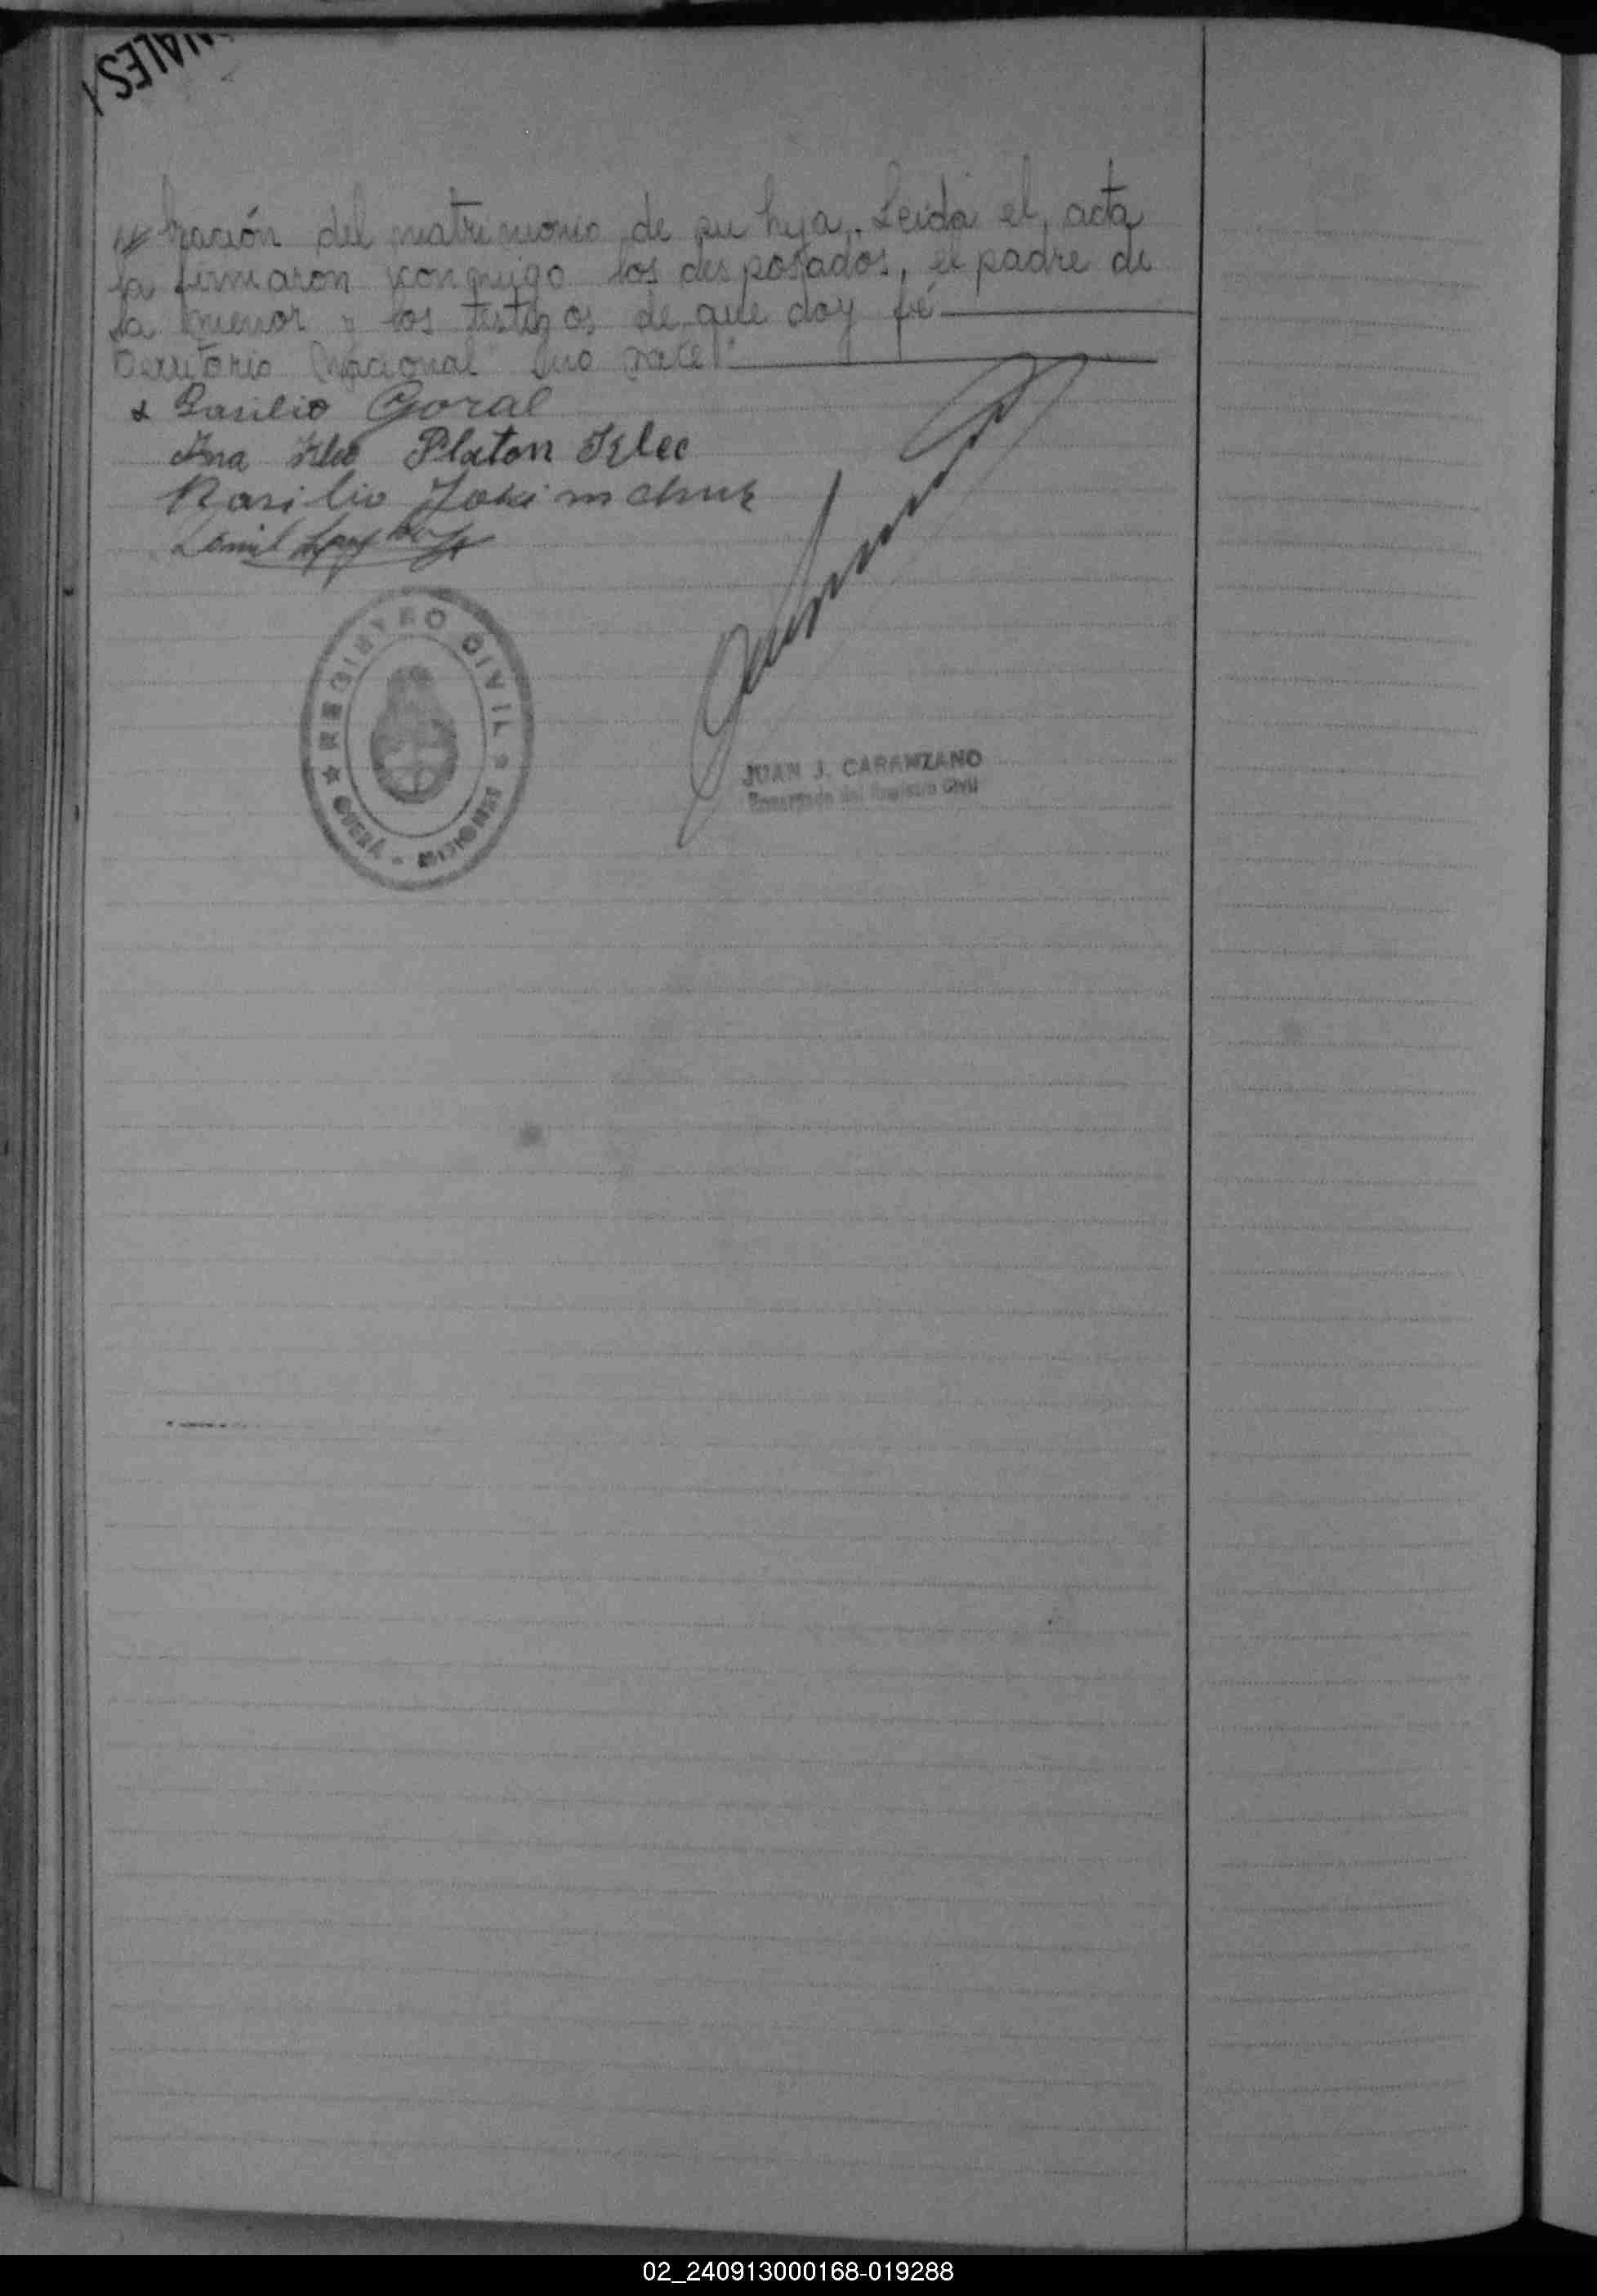 NALES
bración del matrimonio de su hija. Leida el acta
la firmaron conmigo los desposados, el padre de
la menor y los testigos de que doy fé
Territorio Nacional "no vale"
Basilio Goral
Ana Izlec Platon Izlec
Basilio Jokimchuk
Daniel
REGISTRO CIVIL
OBERÁ - MISIONES
JUAN J. CARANZANO
Encargado del Registro Civil
02_240913000168-019288